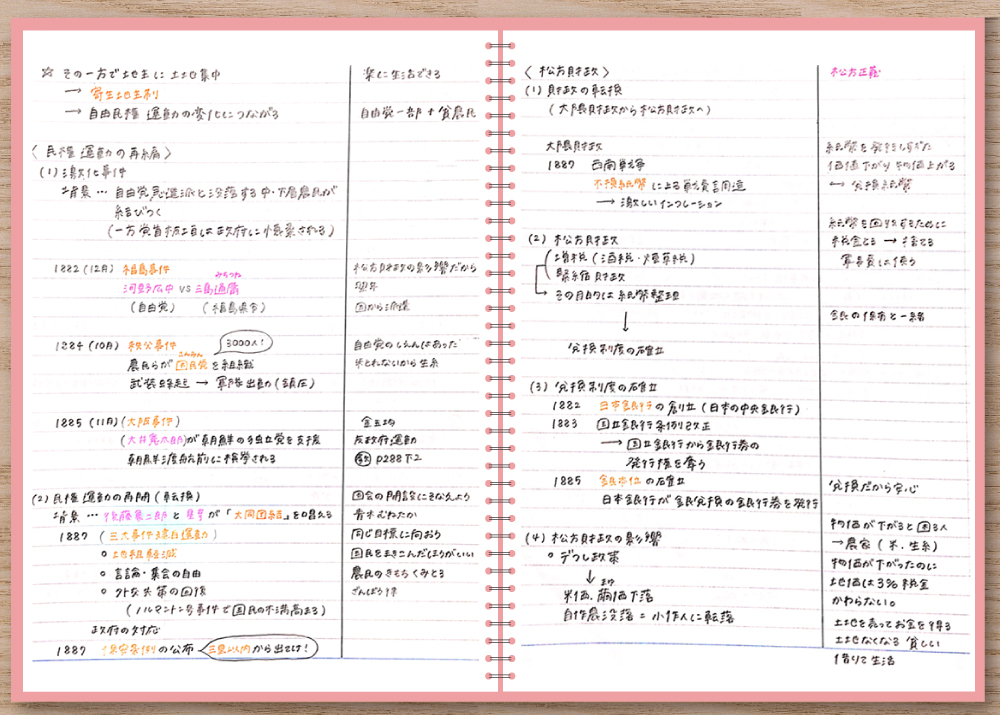 ☆ その一方で地主に土地集中
→ 寄生地主制
→ 自由民権運動の変化につながる
〈民権運動の再編〉
(1) 激化事件
背景… 自由党急進派と没落する中・下層農民が
結びつく
(一方党首板垣は政府に懐柔される)
1882 (12月) 福島事件
みちつね
河野広中 VS 三島通庸
(自由党) (福島県令)
1884 (10月) 秩父事件 3000人!
こんみん
農民らが困民党を組織
武装蜂起 → 軍隊出動 (鎮圧)
1885 (11月) (大阪事件)
(大井憲太郎)が朝鮮の独立党を支援
朝鮮渡航前に検挙される
(2) 民権運動の再開 (転換)
背景… 後藤象二郎と星亨が「大同団結」を唱える
1887 (三大事件建白運動)
○ 地租軽減
○ 言論・集会の自由
○ 外交失策の回復
(ノルマントン号事件で国民の不満高まる)
政府の対応
1887 保安条例の公布 三里以内から出てけ!
楽に生活できる
自由党一部+貧農民
松方財政の影響だから
翌年
国から派遣
自由党のしえんはあった
米とれないから生糸
金玉均
反政府運動
P288下2
国会の開設にそなえよう
青木むねたか
同じ目標に向おう
国民をまきこんだほうがいい
農民のきもちくみとる
ざんぼうりつ
〈松方財政〉
(1) 財政の転換
(大隈財政から松方財政へ)
大隈財政
1887 西南戦争
不換紙幣による戦費調達
→ 激しいインフレーション
(2) 松方財政
増税 (酒税・煙草税)
緊縮財政
→ その目的は紙幣整理
↓
兌換制度の確立
(3) 兌換制度の確立
1882 日本銀行の創立 (日本の中央銀行)
1883 国立銀行条例改正
→ 国立銀行から銀行券の
発行権を奪う
1885 銀本位の確立
日本銀行が銀兌換の銀行券を発行
(4) 松方財政の影響
○ デフレ政策
↓ まゆ
米価・繭価下落
自作農没落=小作人に転落
松方正義
紙幣を発行しすぎた
価値下がり物価上がる
→ 兌換紙幣
紙幣を回収するために
税金とる → 捨てる
軍事費に使う
銀の保有と一緒
兌換だから安心
物価が下がると困る人
→農家 (米・生糸)
物価が下がったのに
地価は3%税金
かわらない。
土地を売ってお金を得る
土地なくなる 貧しい
借りて生活